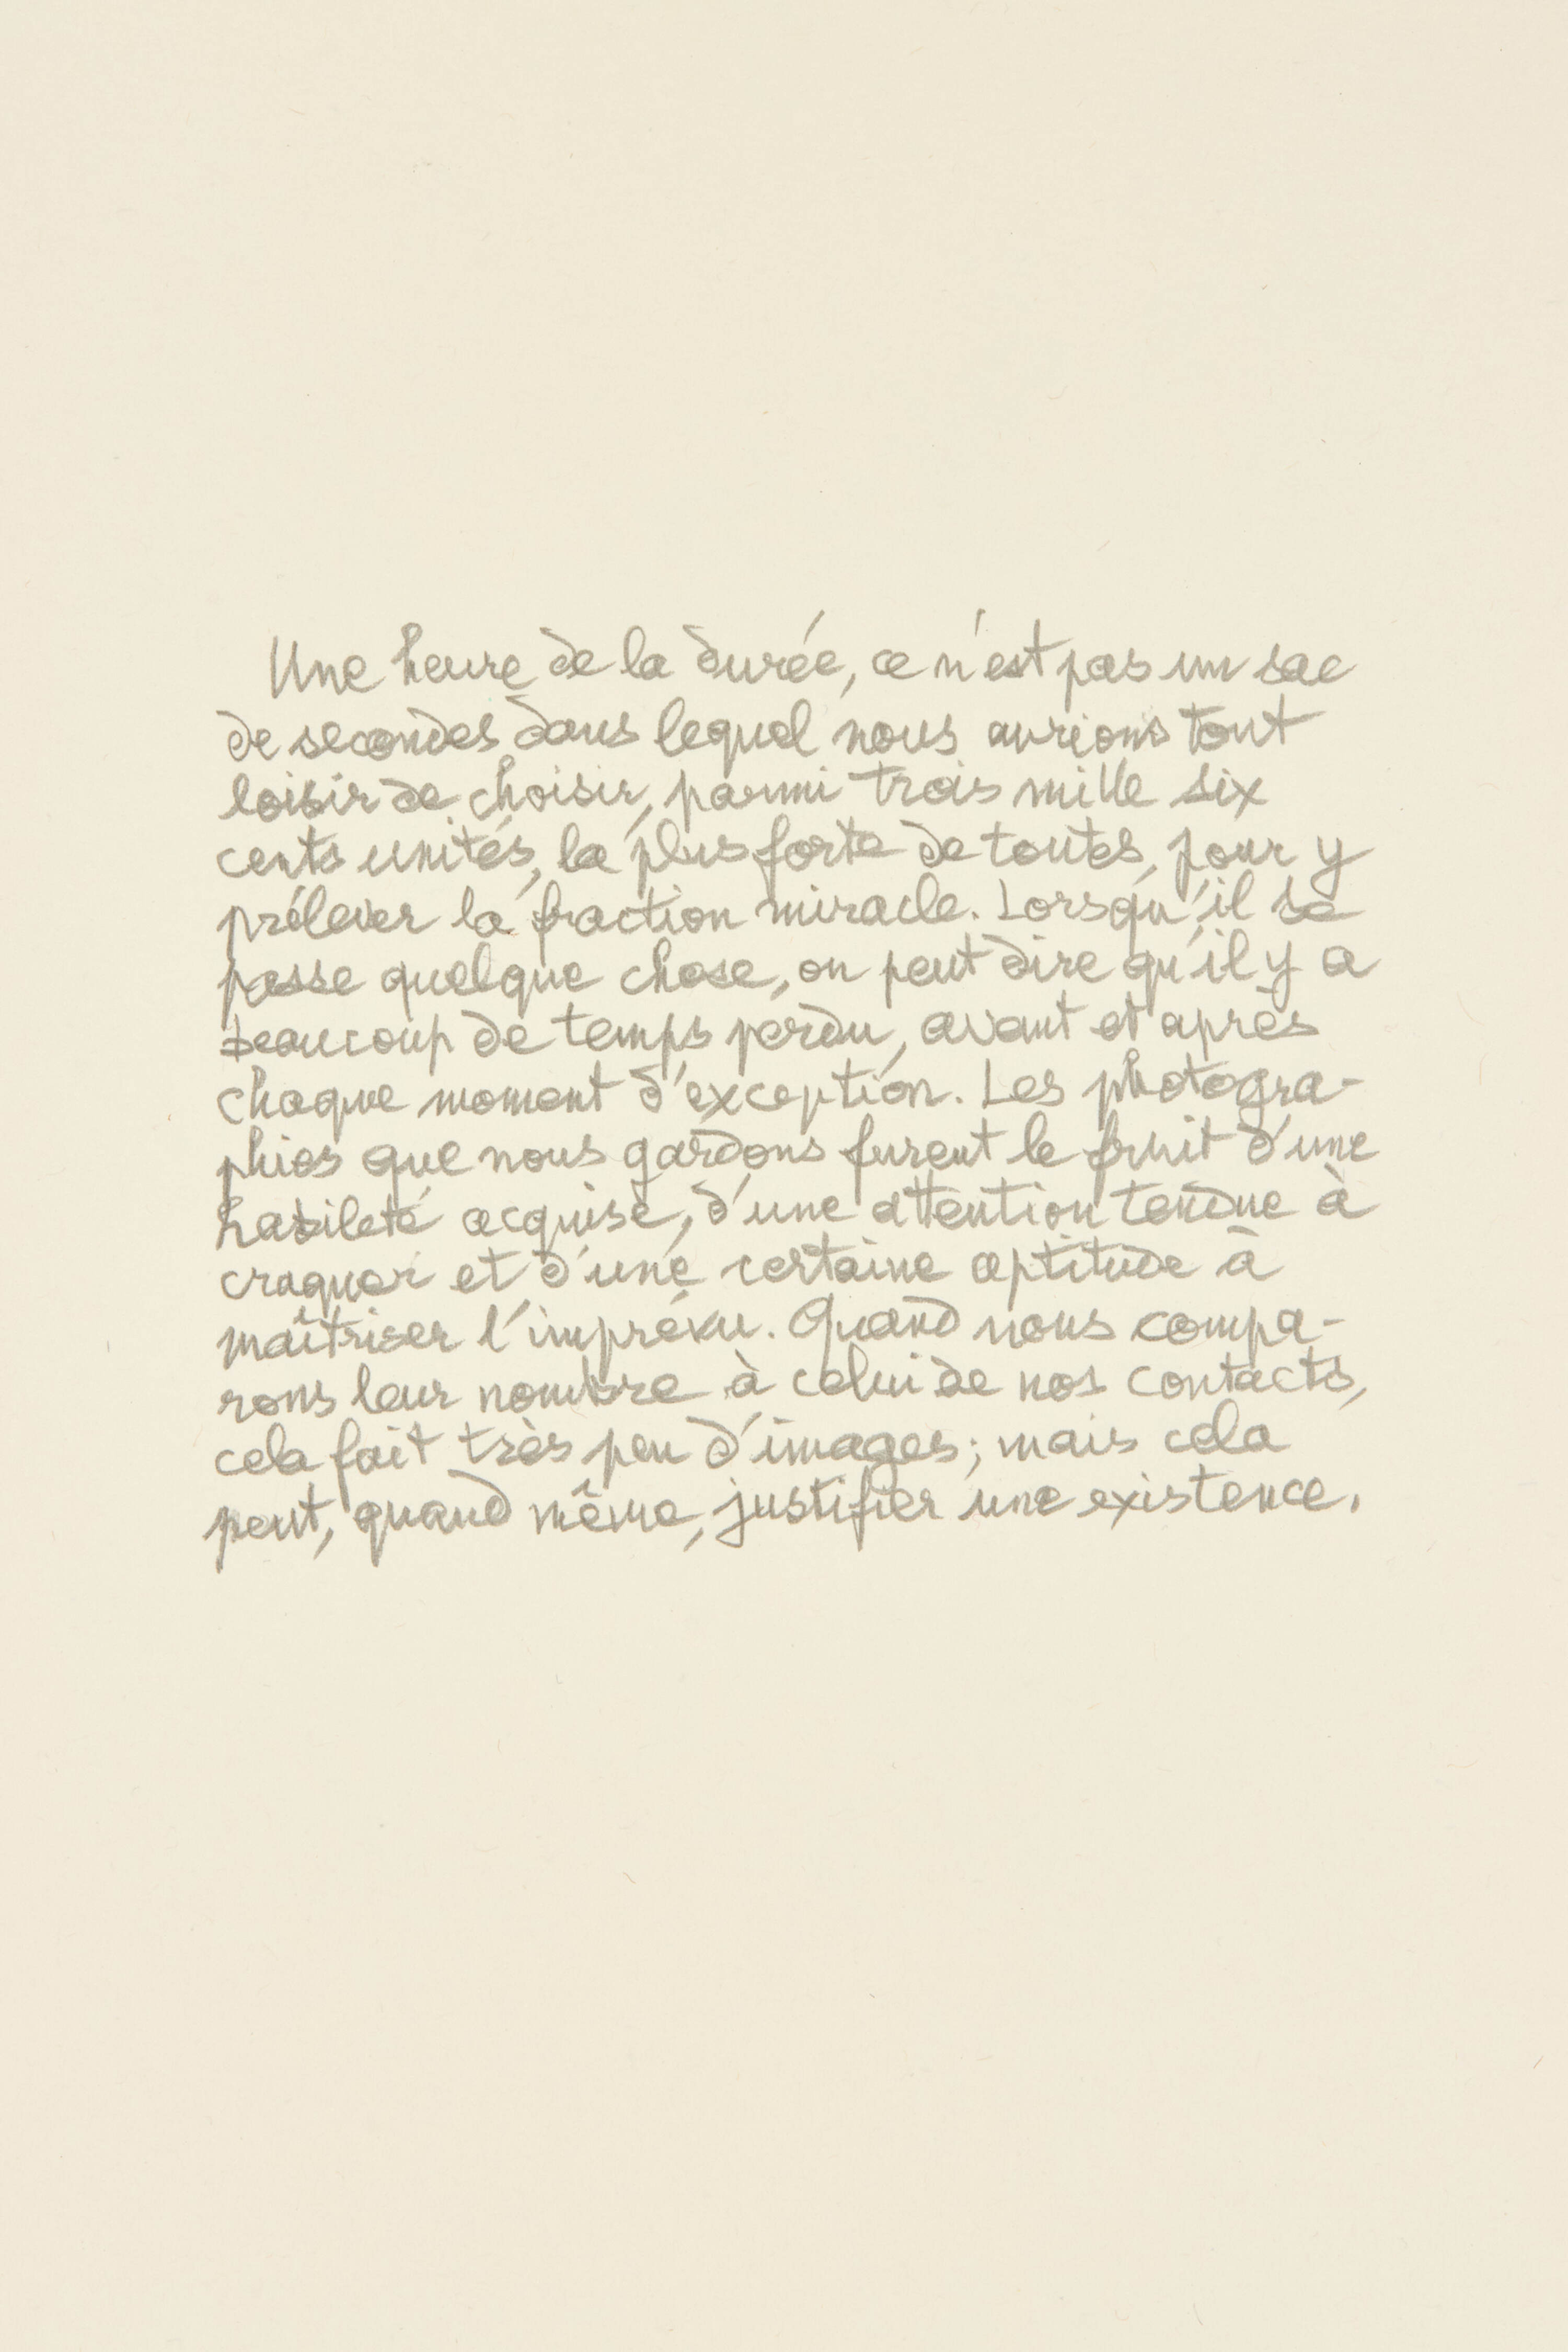 Une heure de la durée, ce n'est pas un sac
de secondes dans lequel nous aurions tout
loisir de choisir, parmi trois mille six
cents unités, la plus forte de toutes, pour y
prélever la fraction miracle. Lorsqu'il se
passe quelque chose, on peut dire qu'il y a
beaucoup de temps perdu, avant et après
chaque moment d'exception. Les photogra-
phies que nous gardons furent le fruit d'une
habileté acquise, d'une attention tendue à
craquer et d'une certaine aptitude à
maîtriser l'imprévu. Quand nous compa-
rons leur nombre à celui de nos contacts,
cela fait très peu d'images ; mais cela
peut, quand même, justifier une existence.